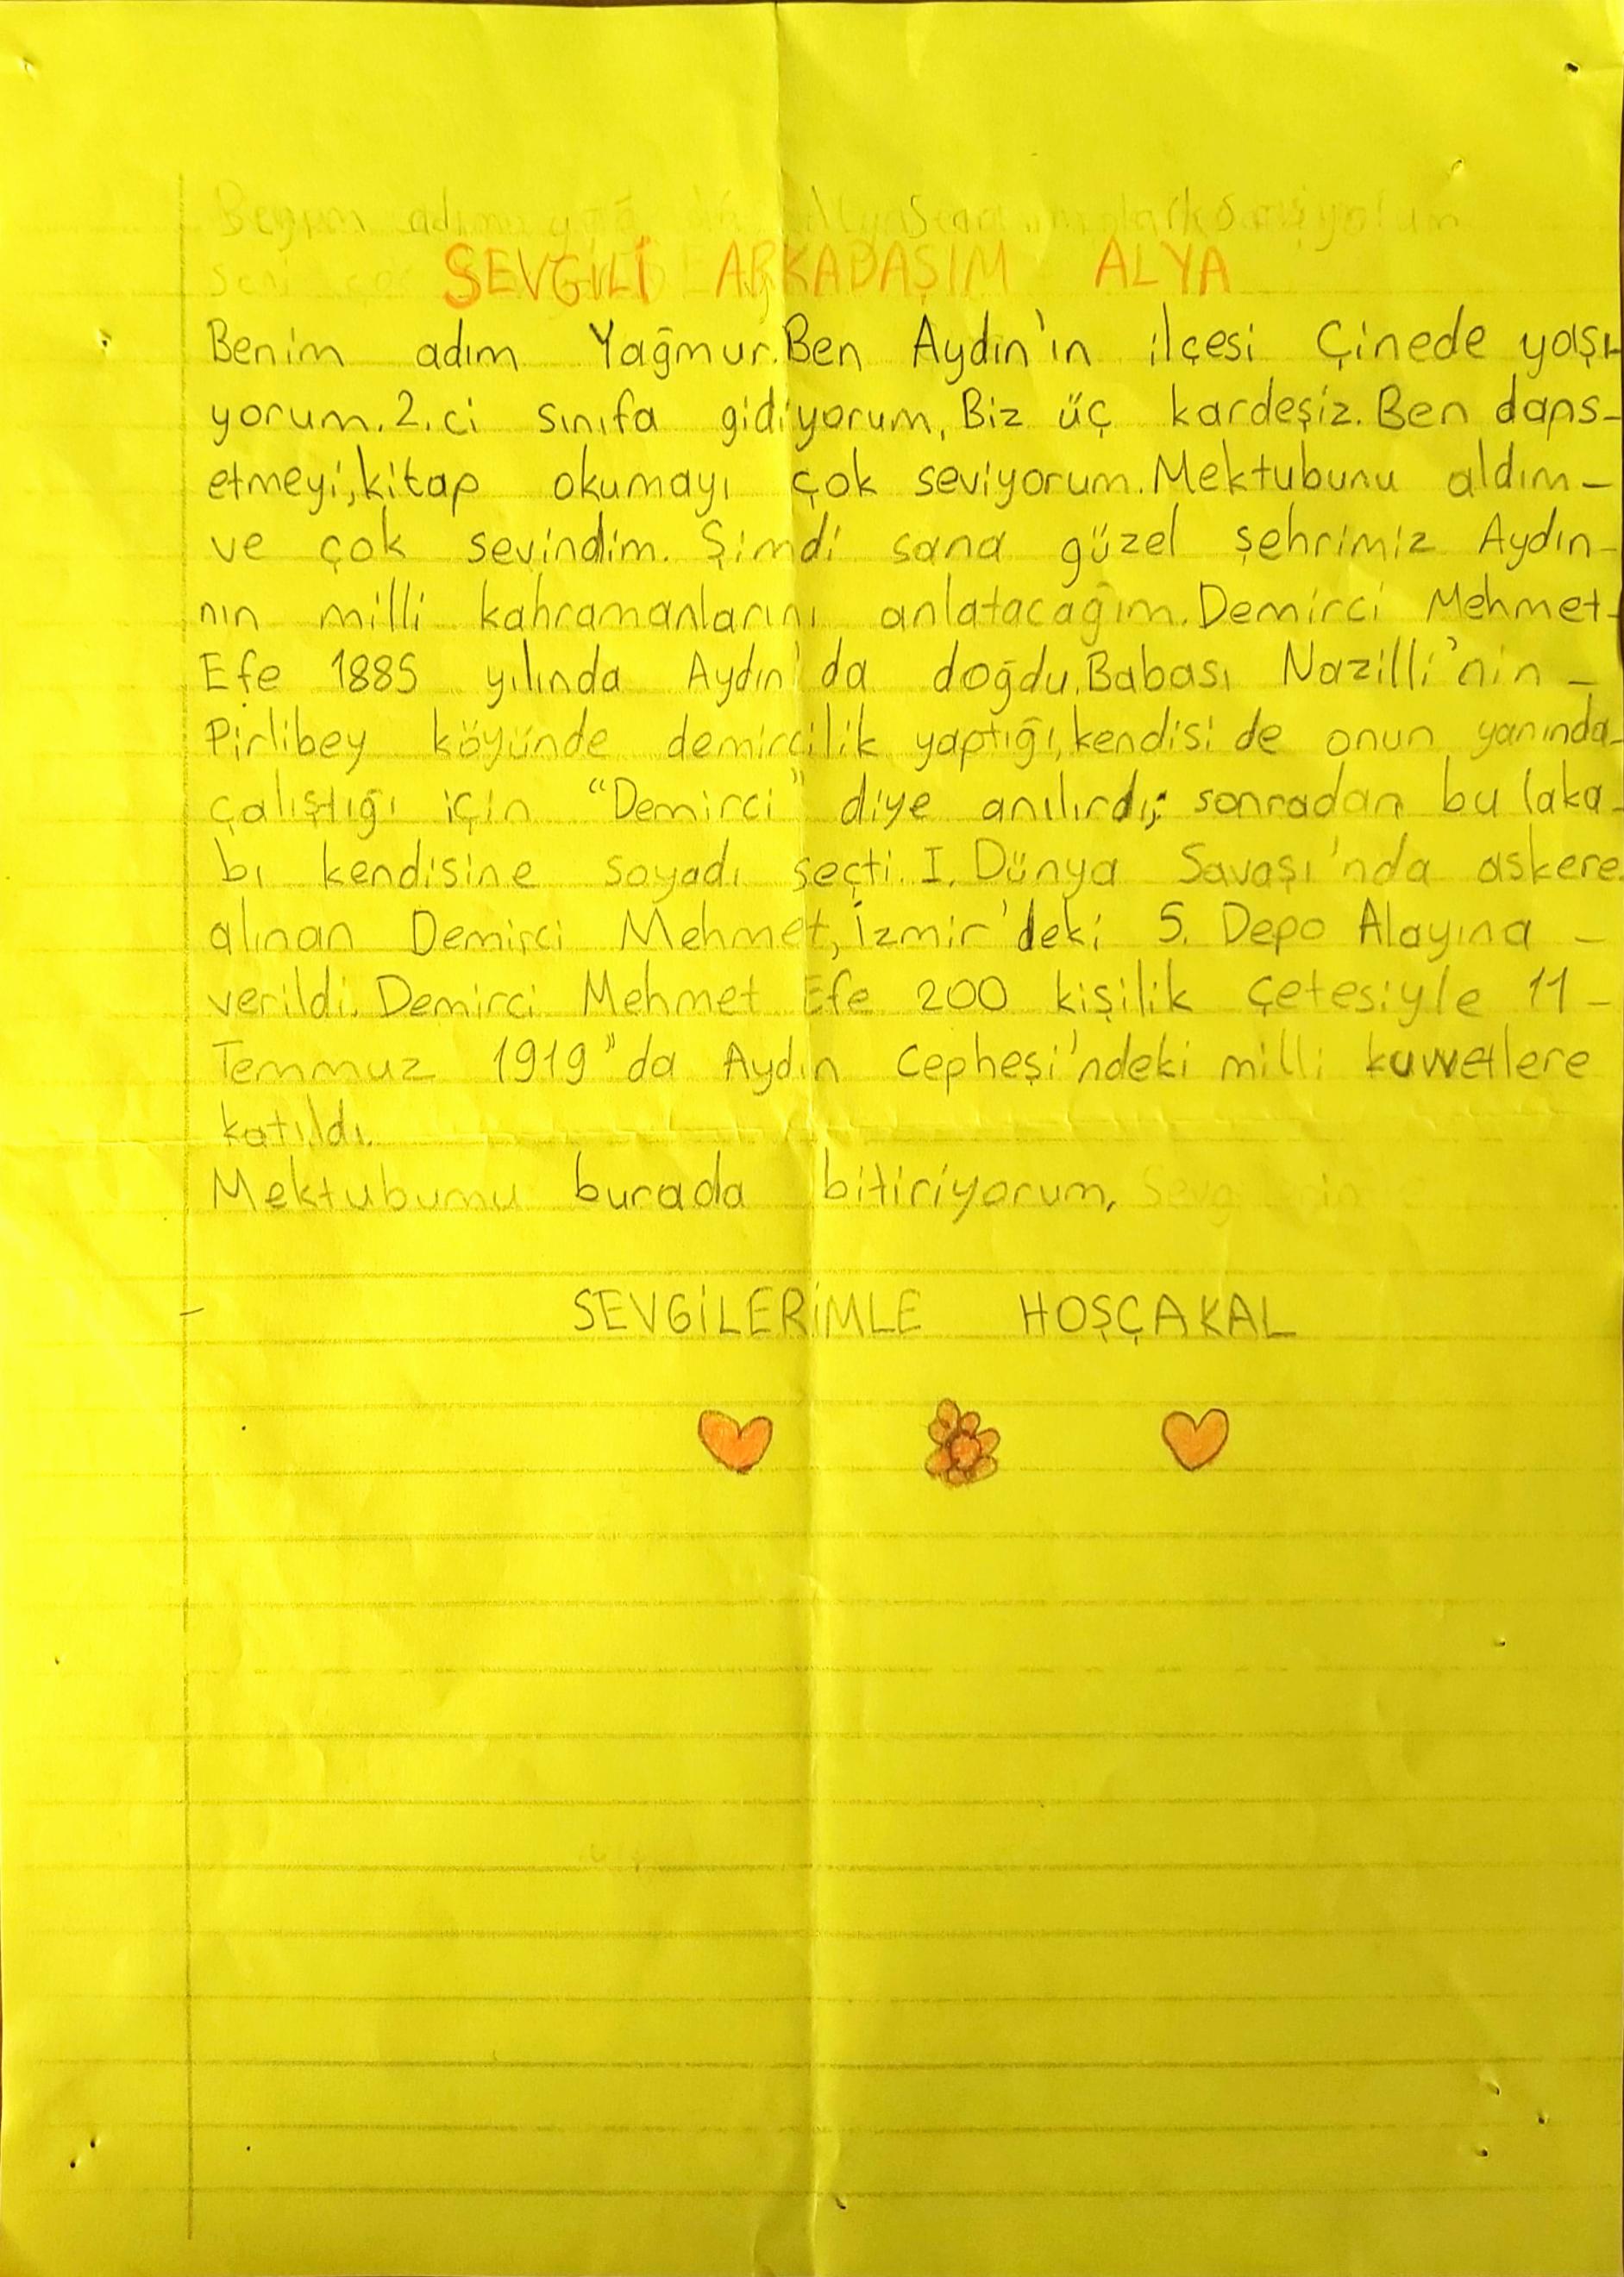 SEVGİLİ ARKADAŞIM ALYA
Benim adım Yağmur. Ben Aydın'ın ilçesi Çinede yaşı
yorum. 2.ci sınıfa gidiyorum, Biz üç kardeşiz. Ben dans-
etmeyi, kitap okumayı çok seviyorum. Mektubunu aldım-
ve çok sevindim. Şimdi sana güzel şehrimiz Aydın-
nın milli kahramanlarını anlatacağım. Demirci Mehmet-
Efe 1885 yılında Aydın'da doğdu. Babası Nazilli'nin -
Pirlibey köyünde demircilik yaptığı, kendisi de onun yanında-
çalıştığı için "Demirci" diye anılırdı; sonradan bu laka
bı kendisine soyadı seçti. I. Dünya Savaşı'nda askere
alınan Demirci Mehmet, İzmir'deki 5. Depo Alayına -
verildi. Demirci Mehmet Efe 200 kişilik çetesiyle 11 -
Temmuz 1919"da Aydın Cephesi'ndeki milli kuvvetlere
katıldı.
Mektubumu burada bitiriyorum,
SEVGİLERİMLE HOŞÇAKAL